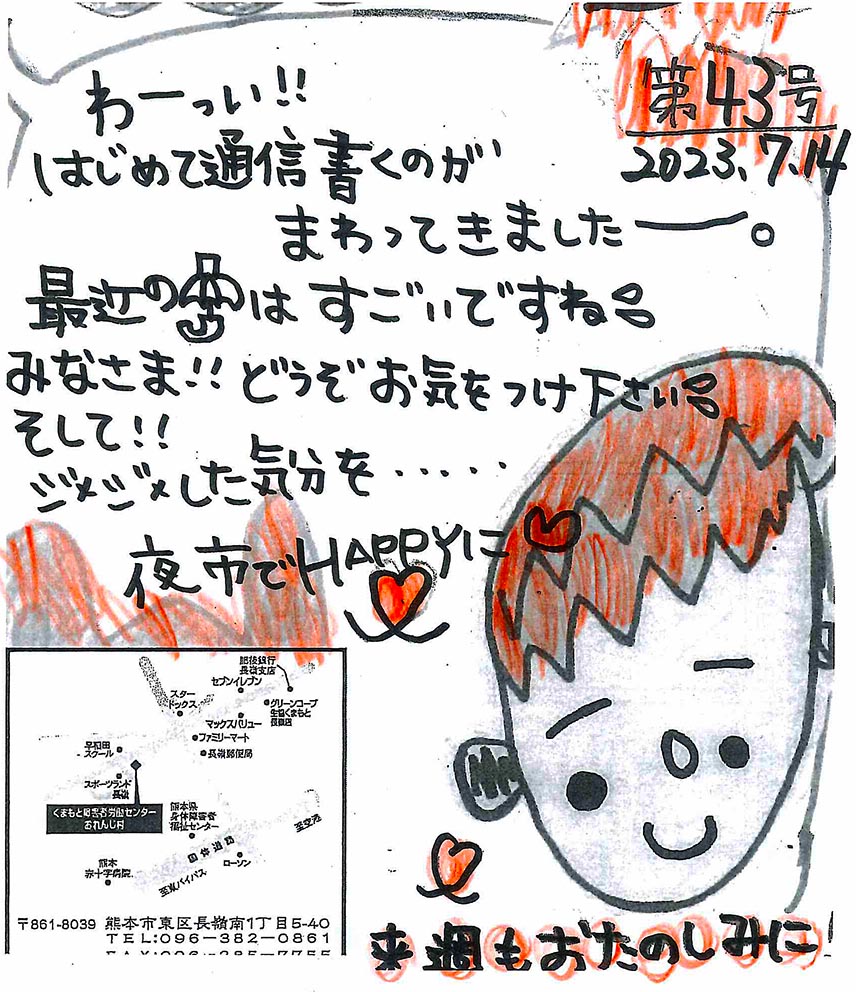 第43号
2023.7.14
わーっい!!
はじめて通信書くのが
まわってきましたー。
最近の☂はすごいですね
みなさま!!どうぞお気をつけ下さい
そして!!
ジメジメした気分を・・・・・
夜市でHAPPYに
肥後銀行
長嶺支店
セブンイレブン
スター
ドックス
グリーンコープ
生協くまもと
長嶺店
マックスバリュー
ファミリーマート
長嶺郵便局
早稲田
スクール
スポーツランド
長嶺
くまもと障害者労働センター
おれんじ村
熊本県
身体障害者
福祉センター
至空港
国体道路
ローソン
熊本
赤十字病院
至東バイパス
〒861-8039 熊本市東区長嶺南1丁目5-40
TEL:096-382-0861
来週もおたのしみに!